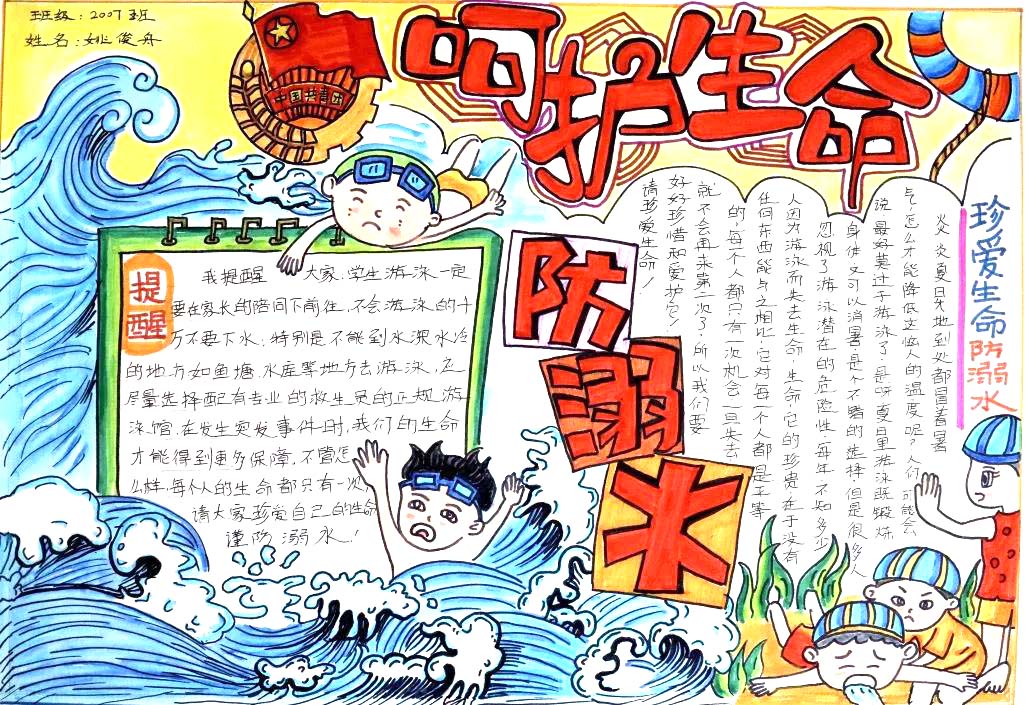 班级：2007班
姓名：姚俊舟
中国共青团
呵护生命
防溺水
提醒
我提醒大家,学生游泳一定
要在家长的陪同下前往,不会游泳的千
万不要下水;特别是不能到水深水冷
的地方如鱼塘、水库等地方去游泳,应
尽量选择配有专业的救生员的正规游
泳馆.在发生突发事件时,我们的生命
才能得到更多保障.不管怎
么样,每个人的生命都只有一次
请大家珍爱自己的生命
谨防溺水!
珍爱生命防溺水
炎炎夏日大地到处都冒着暑
气,怎么才能降低这恼人的温度呢?人们可能会
说最好莫过于游泳了.是呀夏日里游泳既锻炼
身体又可以消暑.是个不错的选择.但是很多人
忽视了游泳潜在的危险性.每年不知多少
人因为游泳而失去生命.生命,它的珍贵在于没有
任何东西能与之相比.它对每一个人都是平等
的,每个人都只有一次机会,一旦失去
就不会再来第二次了,所以我们要
好好珍惜和爱护它!
请珍爱生命!